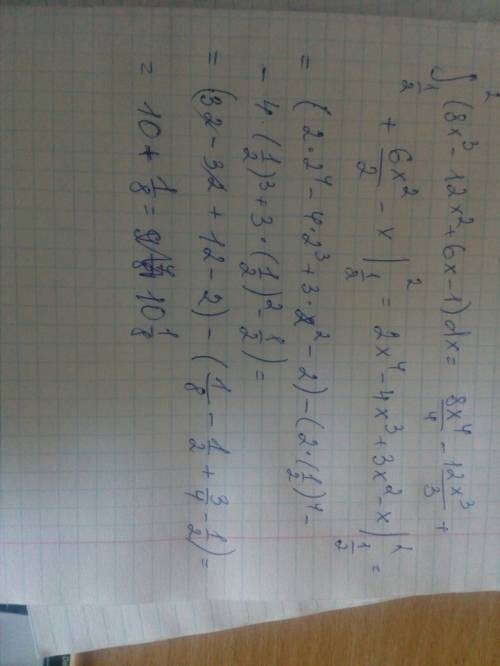 ∫_{1/2}^{2} (8x³ - 12x² + 6x - 1) dx = 8x⁴/4 - 12x³/3 +
+ 6x²/2 - x |_{1/2}^{2} = 2x⁴ - 4x³ + 3x² - x |_{1/2}^{2} =
= (2·2⁴ - 4·2³ + 3·2² - 2) - (2·(1/2)⁴ -
- 4·(1/2)³ + 3·(1/2)² - 1/2) =
= (32 - 32 + 12 - 2) - (1/8 - 1/2 + 3/4 - 1/2) =
= 10 + 1/8 = 10 1/8